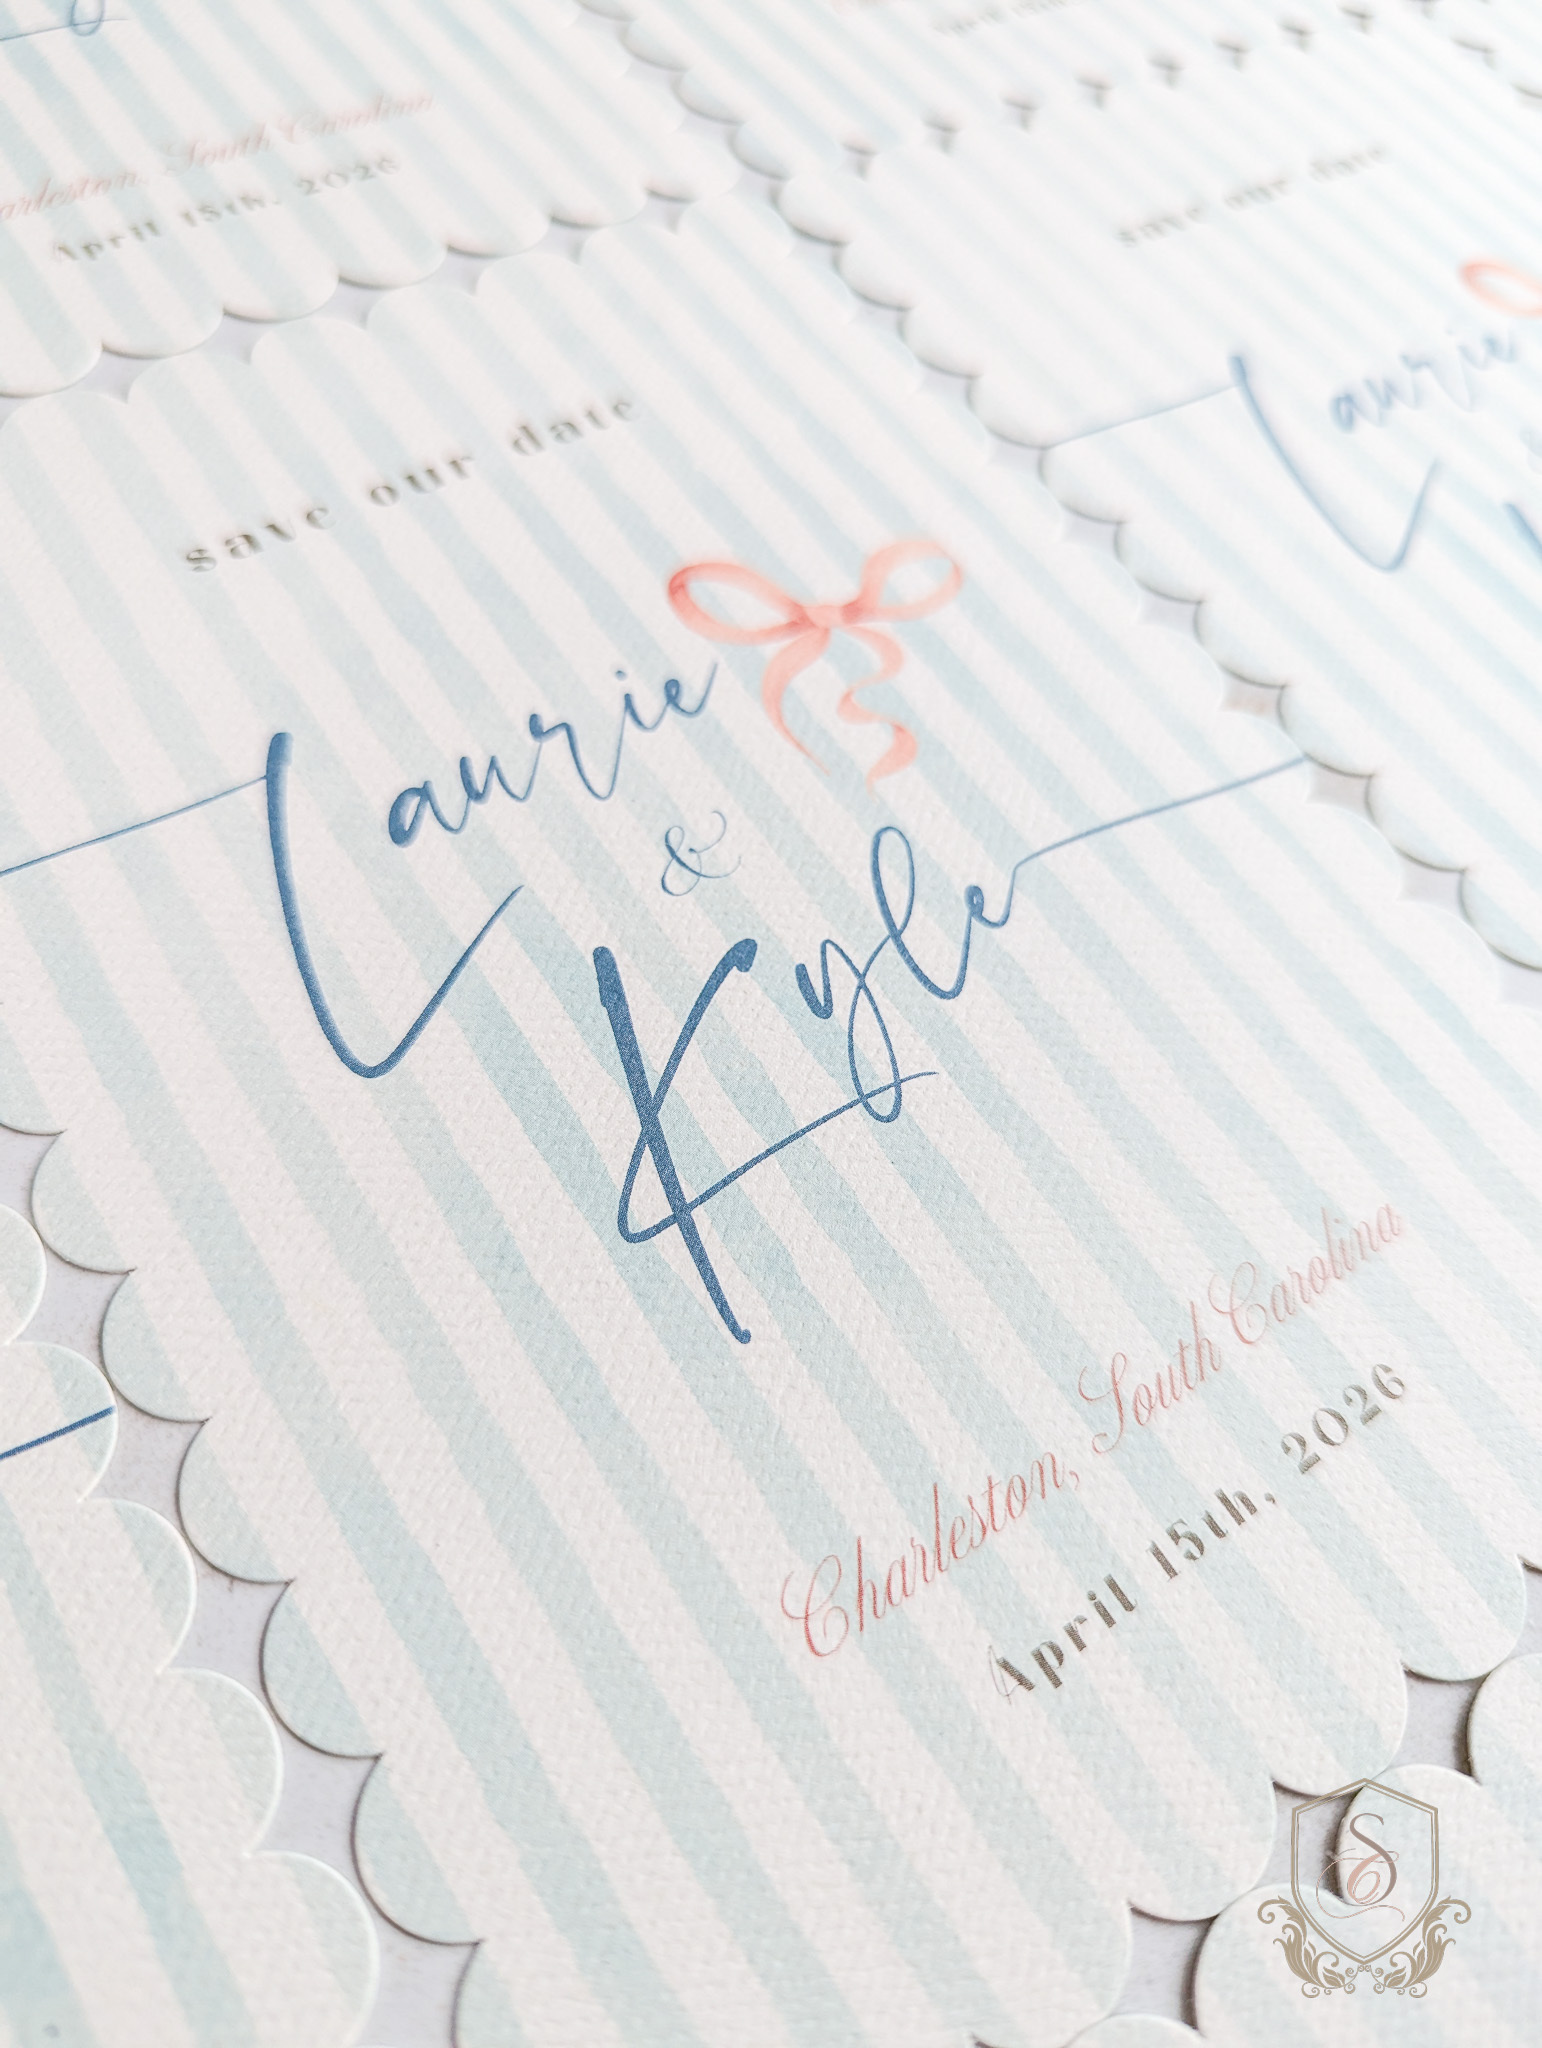 Charleston, South Carolina
April 15th, 2026
save our date
Laurie
save our date
Laurie
&
Kyle
Charleston, South Carolina
April 15th, 2026